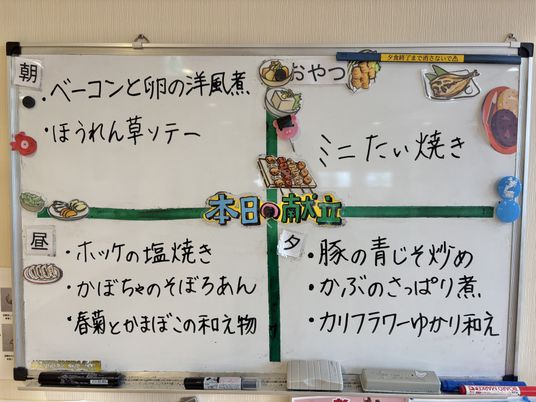 朝
・ベーコンと卵の洋風煮
・ほうれん草ソテー
おやつ
夕食終了まで消さないで
ミニたい焼き
本日の献立
昼
・ホッケの塩焼き
・かぼちゃのそぼろあん
・春菊とかまぼこの和え物
夕
・豚の青じそ炒め
・かぶのさっぱり煮
・カリフラワーゆかり和え